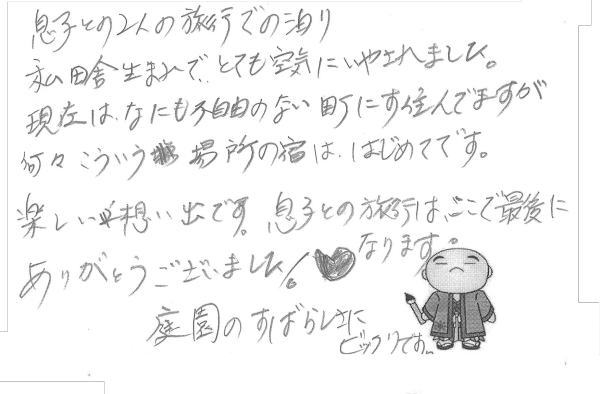 息子との2人の旅行での泊り
私田舎生まれで、とても空気にいやされました。
現在は、なにも不自由のない町にす住んでますが
何々こういう場所の宿は、はじめてです。
楽しい想い出です。息子との旅行は、ここで最後に
なります。
ありがとうございました!
庭園のすばらしさに
ビックリです。